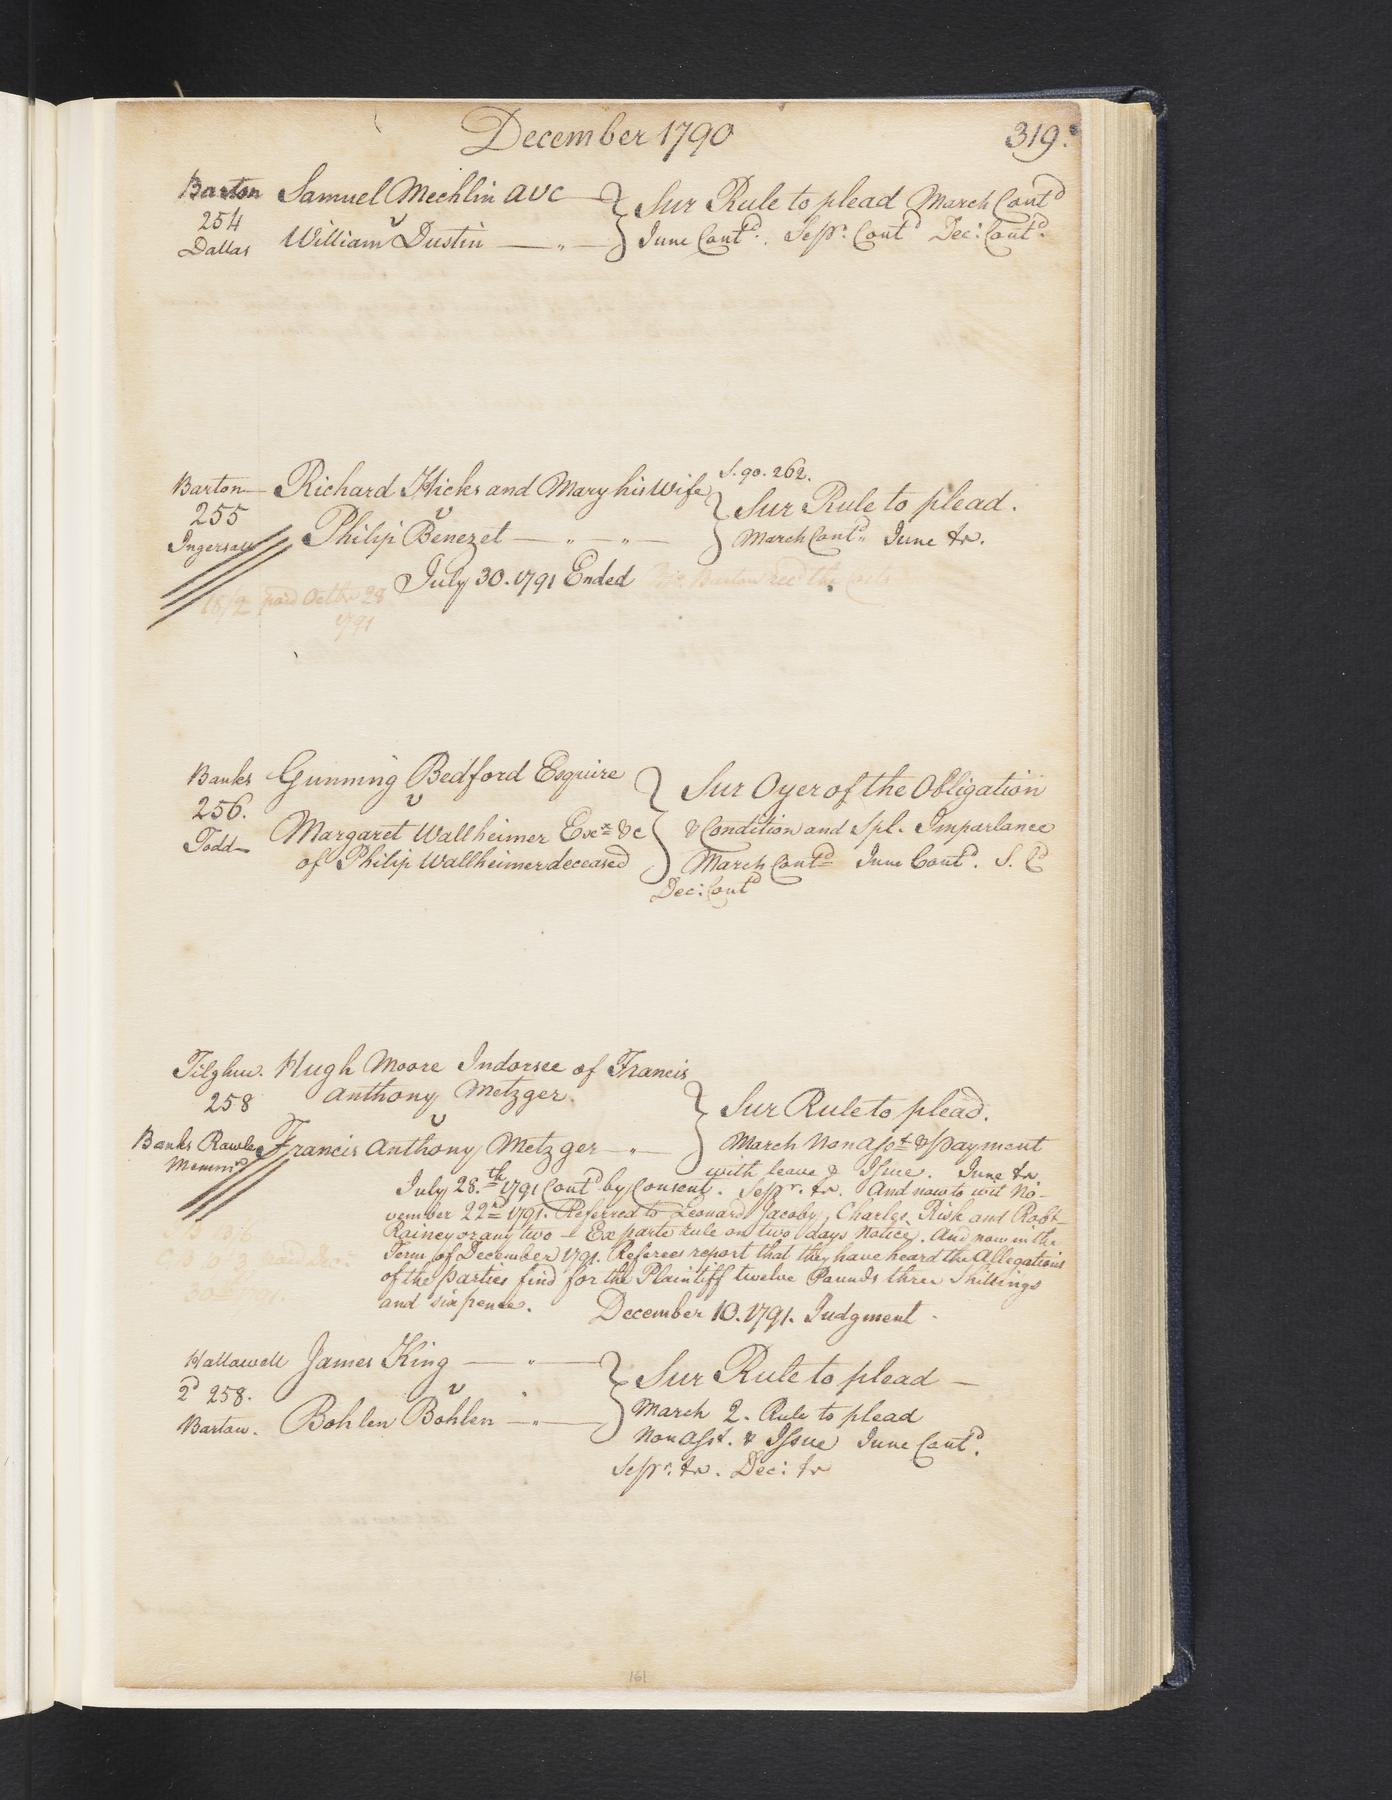 December 1790
319.
Barton Samuel Mechlin avc Sur Rule to plead March Contd
254 v
Dallas William Dustin June Contd. Sepr. Contd Dec: Contd.
S. go. 262.
Barton Richard Hicks and Mary his Wife Sur Rule to plead.
255 v
Ingersoll Philip Benezet March Contd. June tr.
July 30. 1791 Ended Mr. Barton recd the Costs
15/2 paid Octbr 28
1791
Banks Gunning Bedford Esquire Sur Oyer of the Obligation
256. v
Todd Margaret Wallheimer Excx &c & Condition and Spl. Imparlance
of Philip Wallheimer deceased March Contd June Contd. S. Cd
Dec: Contd
Tilghm. Hugh Moore Indorsee of Francis
Anthony Metzger.
258 v Sur Rule to plead.
Banks Rawle Francis Anthony Metzger March Non Asst & payment
with leave & Issue. June tr
July 28.th 1791 Contd by Consent. Sepr. tr. And now to wit No-
vember 22nd 1791. Referred to Leonard Jacoby, Charles Risk and Robt
Rainey or any two – Ex parte rule on two days Notice. And now in the
Term of December 1791. Referees report that they have heard the Allegations
of the parties find for the Plaintiff twelve Pounds three Shillings
and six pence. December 10. 1791. Judgment
Hallawell James King Sur Rule to plead —
2d 258. v
Barton. Bohlen Bohlen March 2. Rule to plead
Non Asst. & Issue June Contd.
Sepr. tr. Dec: tr
161